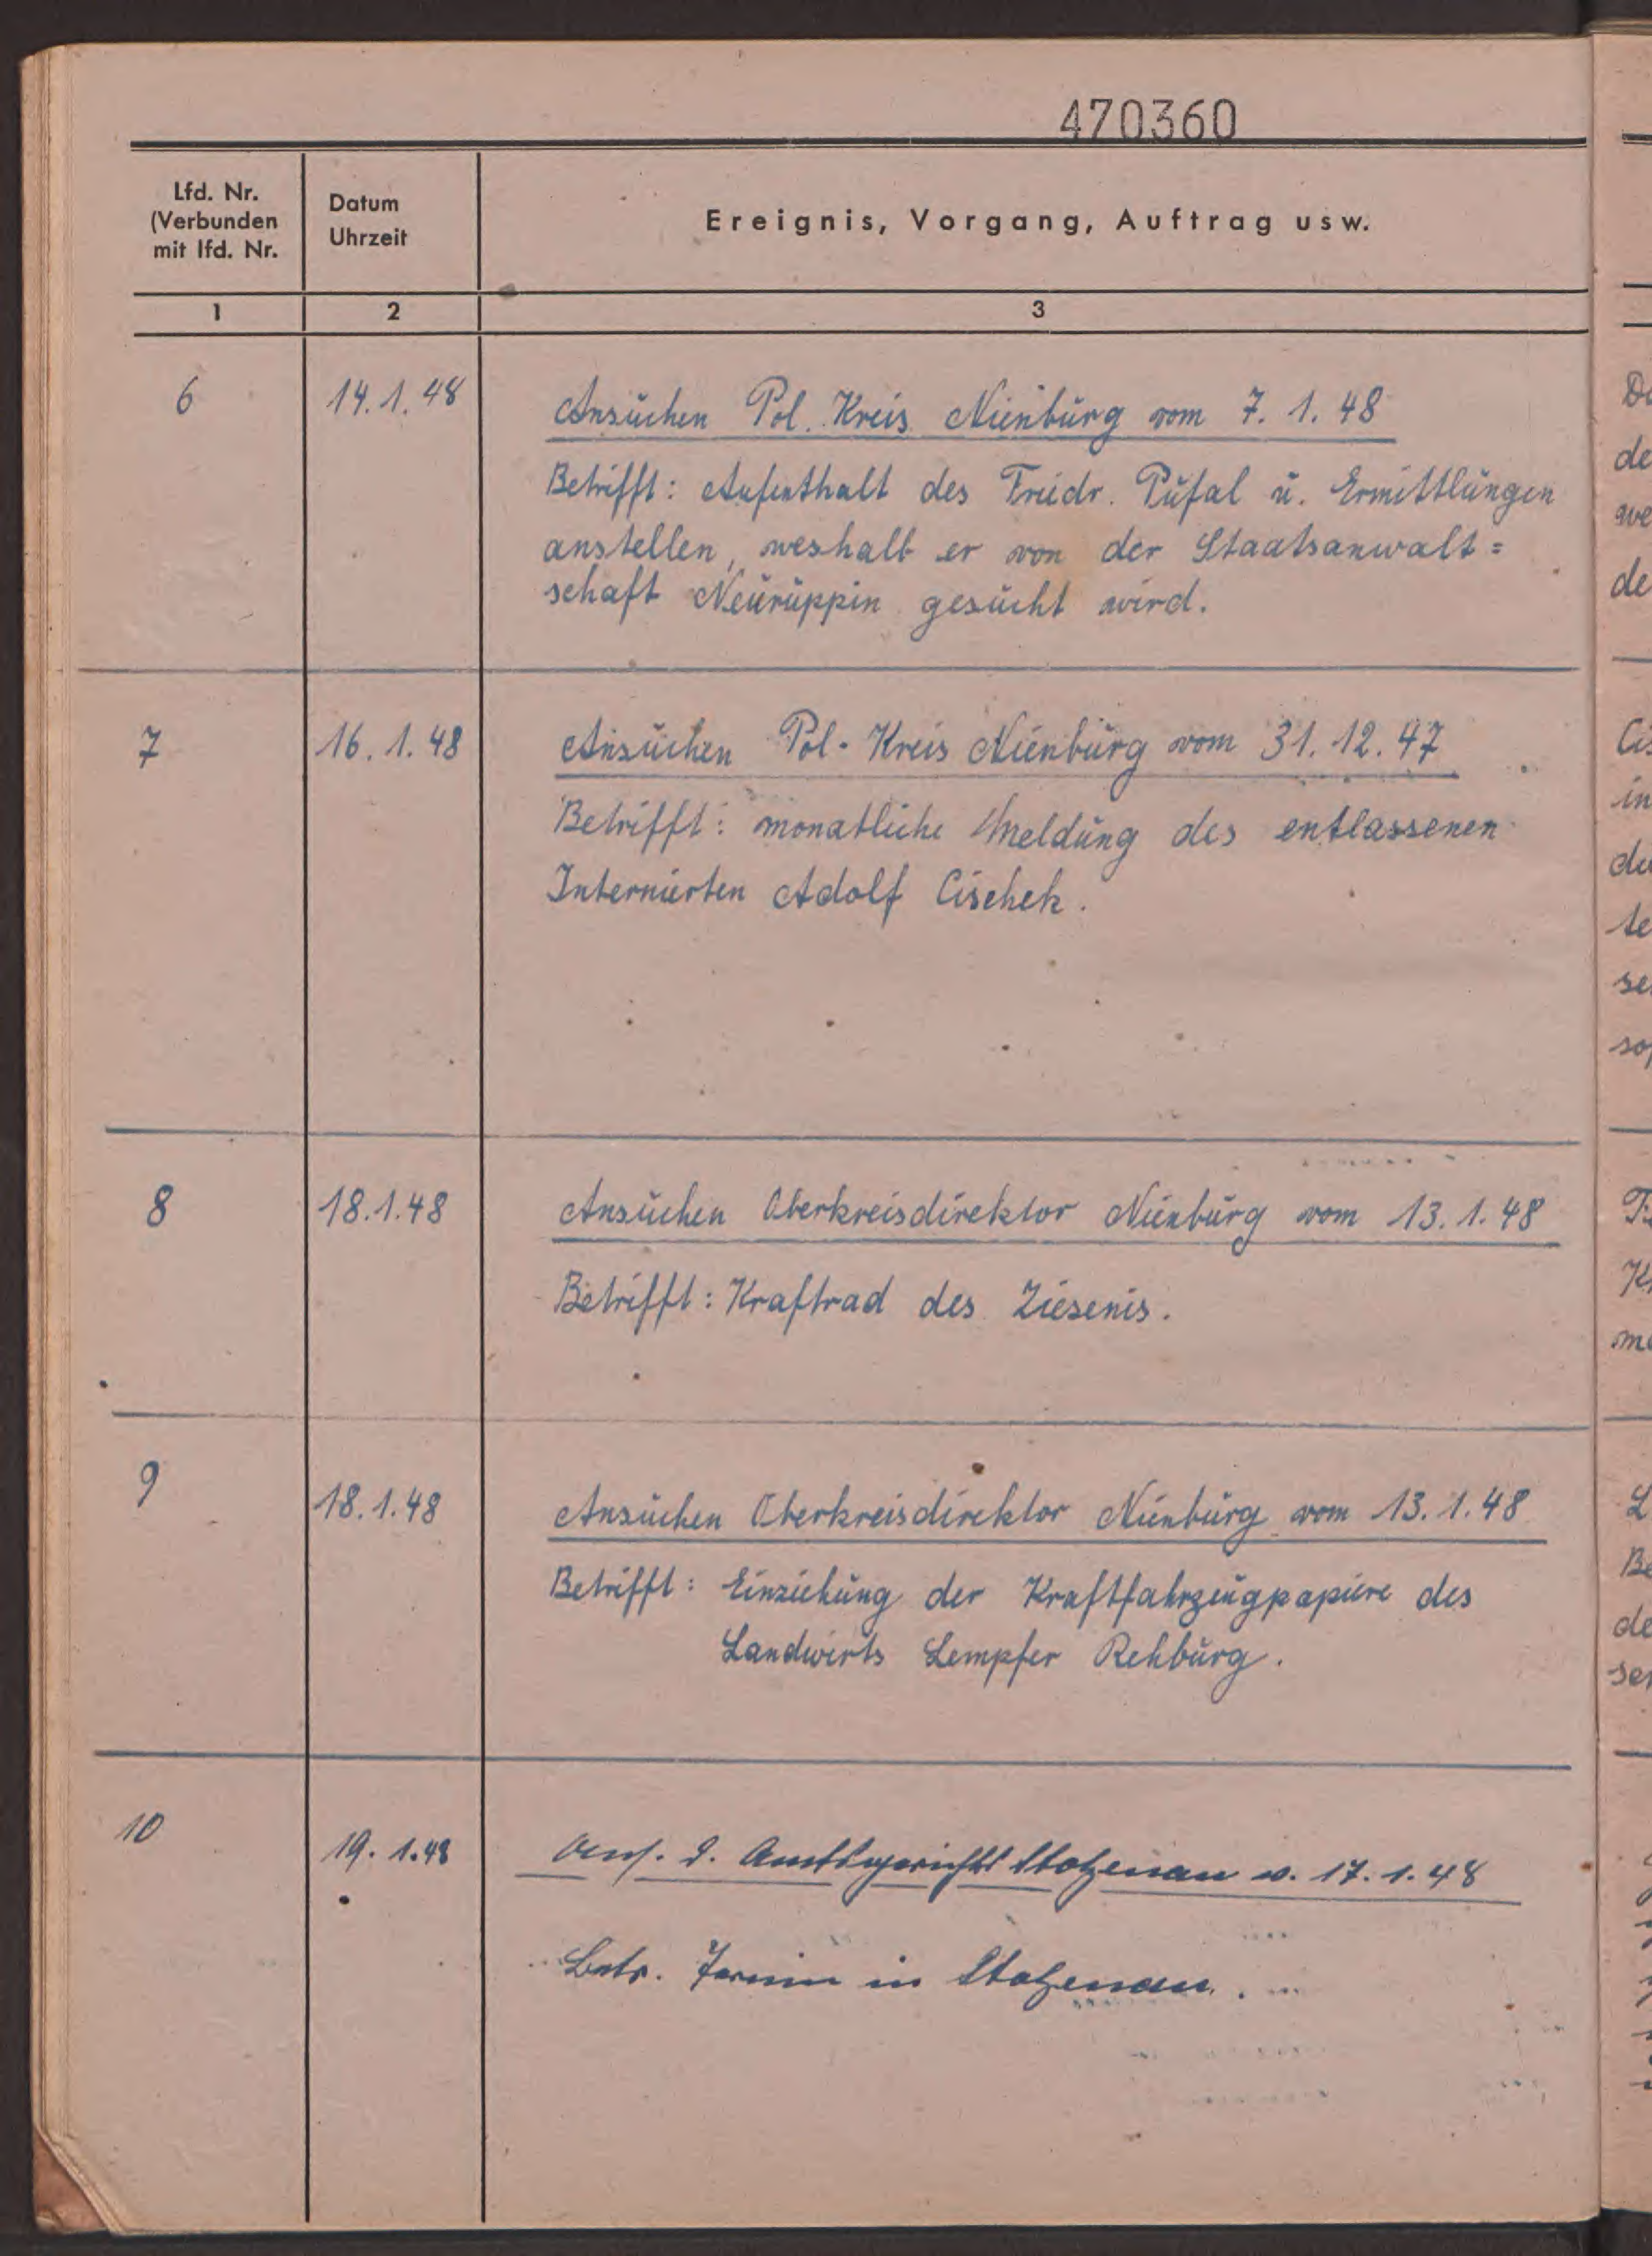 470360
Lfd. Nr.
(Verbunden
mit lfd. Nr.
Datum
Uhrzeit
Ereignis, Vorgang, Auftrag usw.
1 2 3
6 14.1.48 Ansuchen Pol. Kreis Nienburg vom 7. 1. 48
Betrifft: Aufenthalt des Friedr. Pufal u. Ermittlungen
anstellen, weshalb er von der Staatsanwalt=
schaft Neuruppin gesucht wird.
7 16. 1. 48 Ansuchen Pol- Kreis Nienburg vom 31. 12. 47
Betrifft: monatliche Meldung des entlassenen
Internierten Adolf Cischek.
8 18.1.48 Ansuchen Oberkreisdirektor Nienburg vom 13. 1. 48
Betrifft: Kraftrad des Ziesenis.
9 18.1.48 Ansuchen Oberkreisdirektor Nienburg vom 13. 1. 48
Betrifft: Einziehung der Kraftfahrzeugpapiere des
Landwirts Lempfer Rehburg.
10 19. 1.48 Ans. d. Amtsgerichts Stolzenau v. 17. 1. 48
Betr. Termin in Stolzenau.